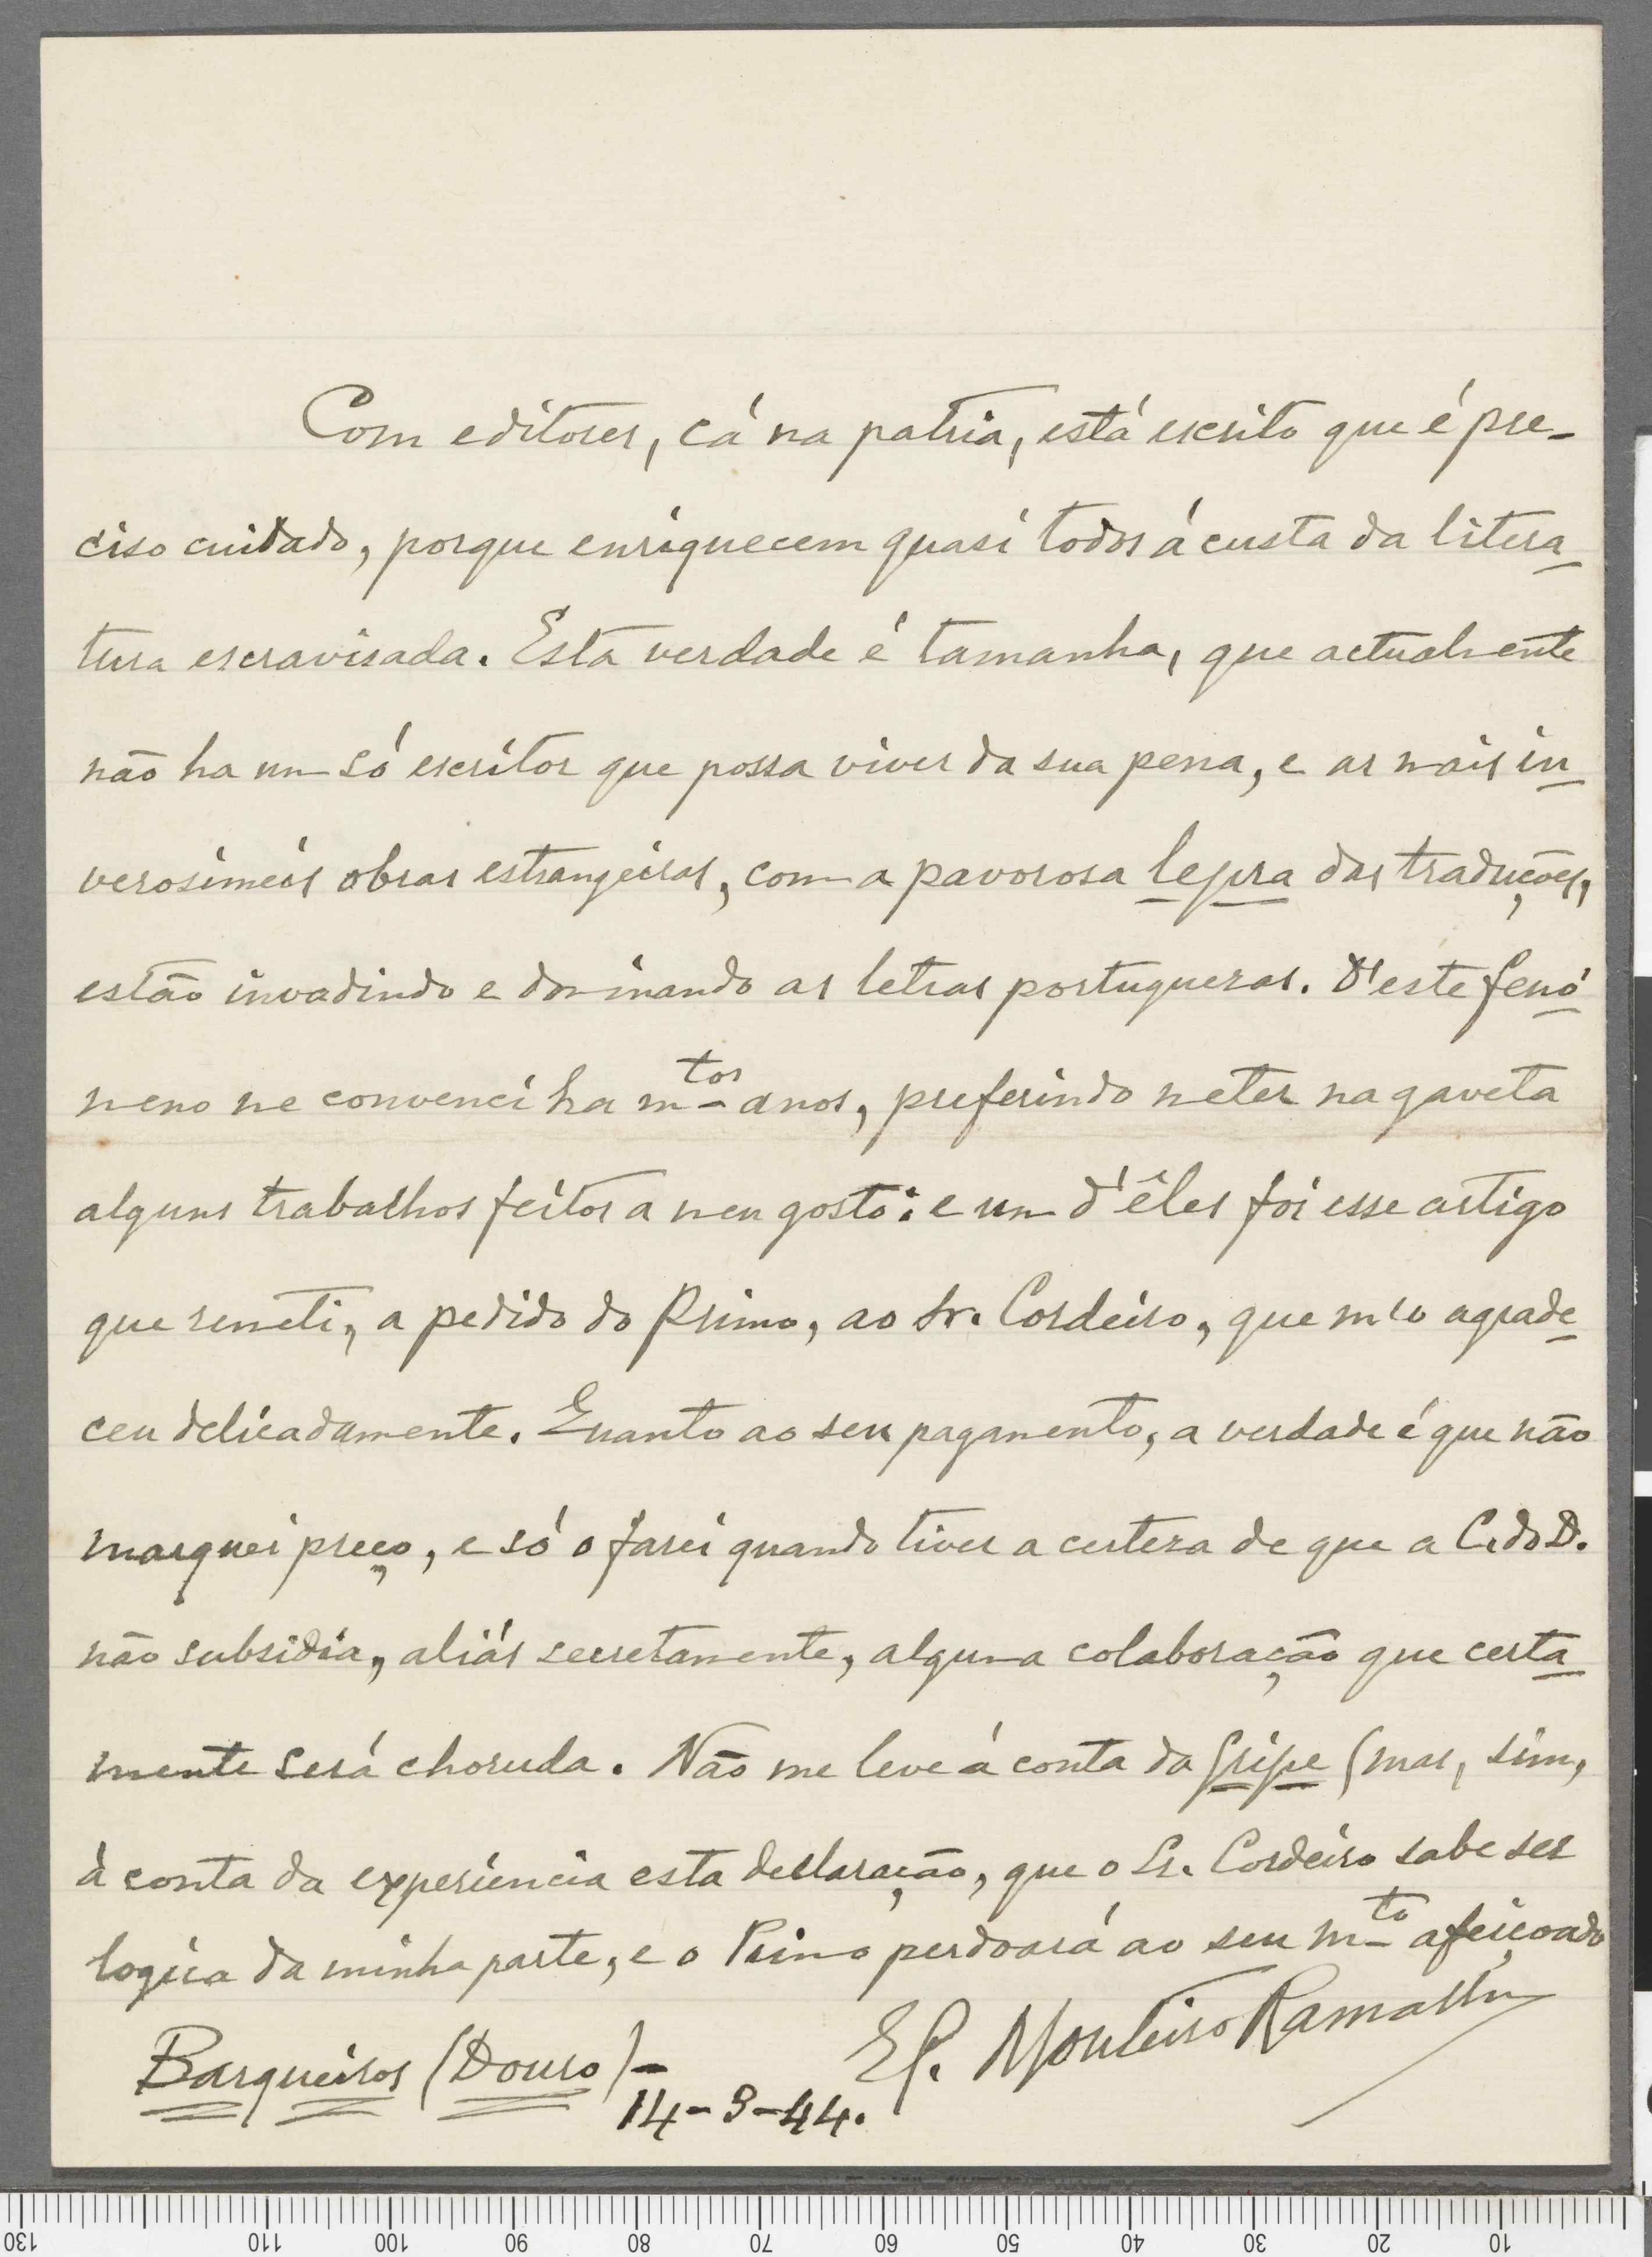 Com editores, cá na patria, está escrito que é pre-
ciso cuidado, porque enriquecem quasi todos á custa da litera-
tura escravisada. Esta verdade é tamanha, que actualmente
não ha um só escritor que possa viver da sua pena, e as mais in-
verosimeis obras estrangeiras, com a pavorosa lepra das traduções,
estão invadindo e dominando as letras portuguezas. D'este fenó-
meno me convenci ha m.tos anos, preferindo meter na gaveta
alguns trabalhos feitos a meu gosto: e um d'êles foi esse artigo
que remeti, a pedido do Primo, ao Sr. Cordeiro, que m'o agrade-
ceu delicadamente. Quanto ao seu pagamento, a verdade é que não
marquei preço, e só o farei quando tiver a certeza de que a C. do D.
não subsidia, aliás secretamente, alguma colaboração que certa-
mente será choruda. Não me leve á conta da gripe (mas, sim,
à conta da experiencia esta declaração, que o Sr. Cordeiro sabe ser
logica da minha parte, e o Primo perdoará ao seu m.to afeiçoado
Monteiro Ramalho
Barqueiros (Douro) -
14-3-44.
130 110 100 90 80 70 60 50 40 30 20 10